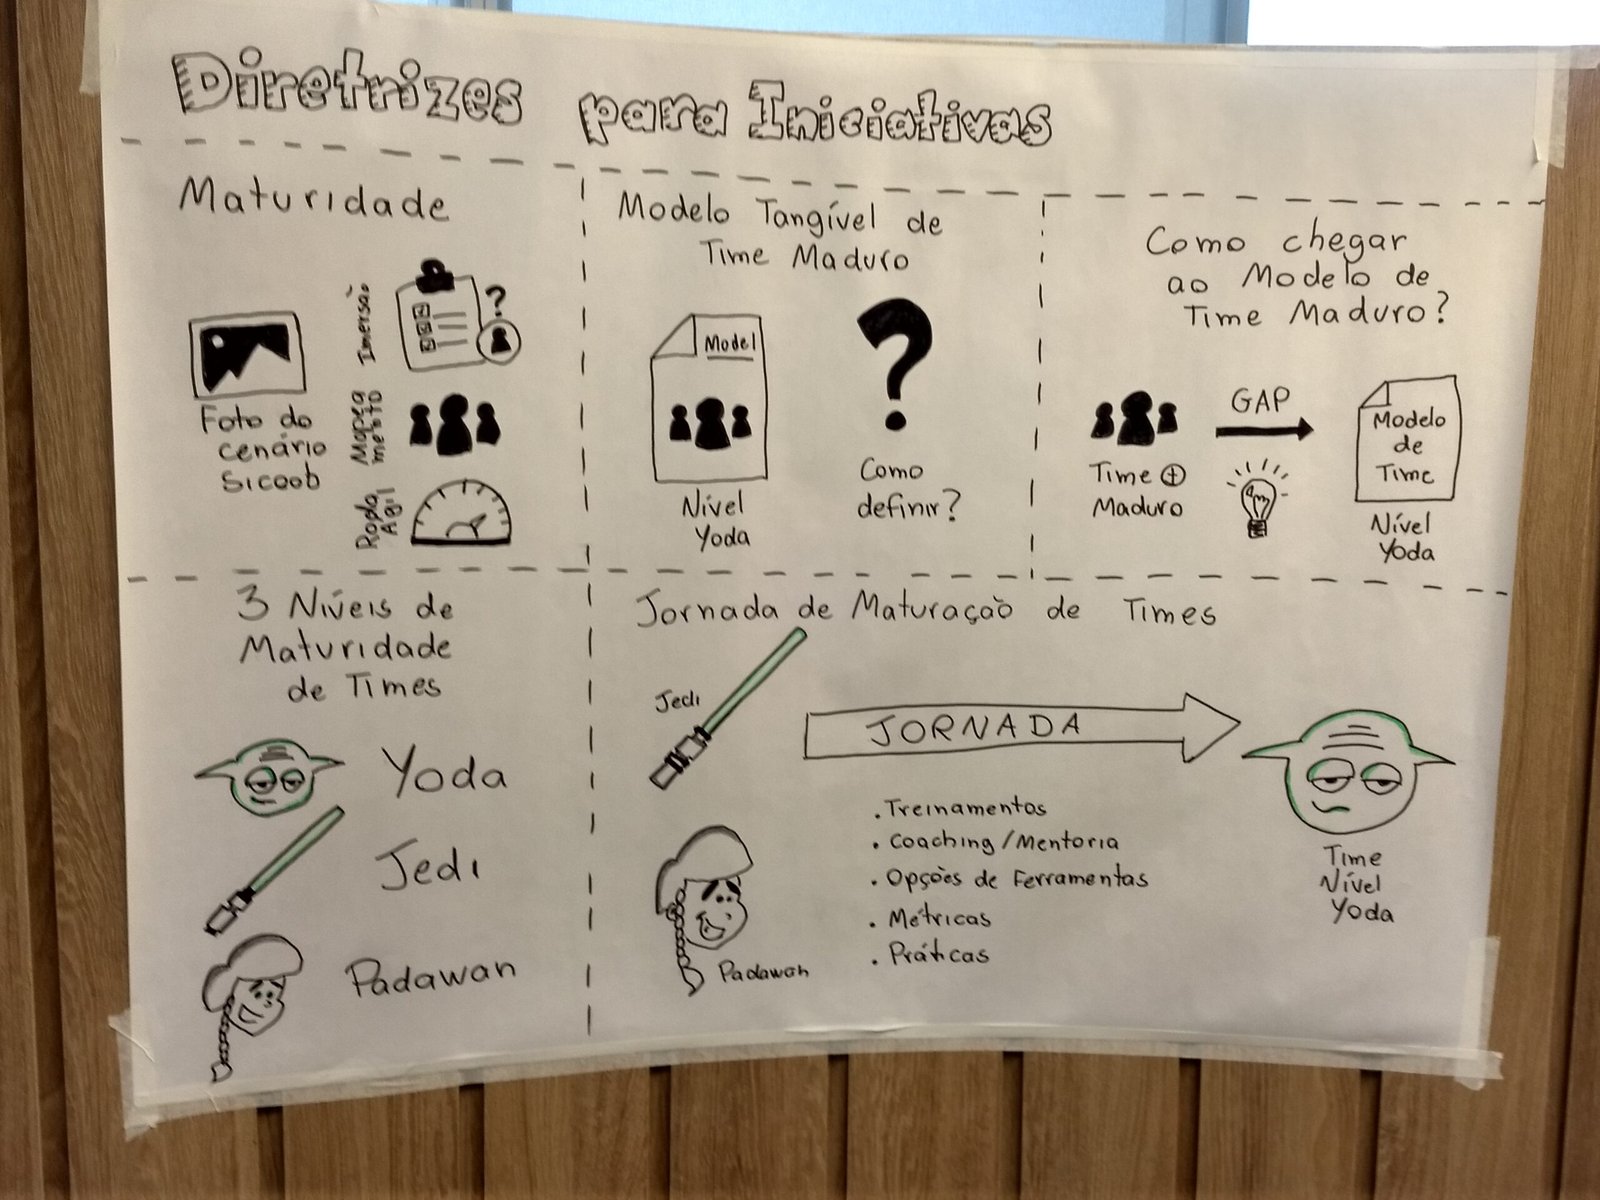 Diretrizes para Iniciativas
Maturidade
Foto do
cenário
Sicoob
Imersão
Mapea
mento
Roda
Ágil
Modelo Tangível de
Time Maduro
Model
Nível
Yoda
Como
definir?
Como chegar
ao Modelo de
Time Maduro?
Time +
Maduro
GAP
Modelo
de
Time
Nível
Yoda
3 Níveis de
Maturidade
de Times
Yoda
Jedi
Padawan
Jornada de Maturação de Times
Jedi
Padawan
JORNADA
. Treinamentos
. Coaching/Mentoria
. Opções de Ferramentas
. Métricas
. Práticas
Time
Nível
Yoda